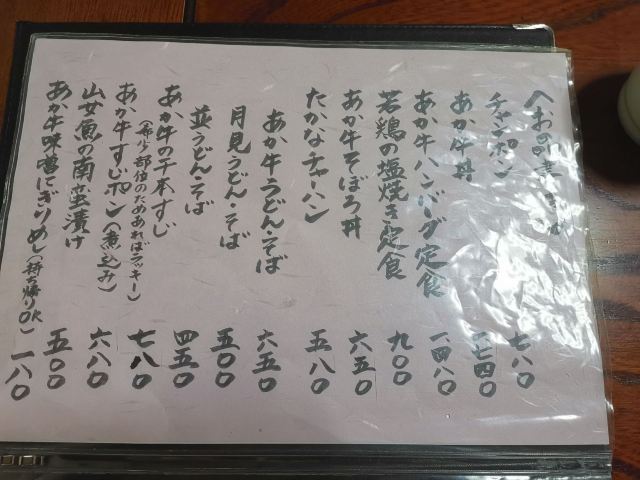 〈お品書き〉
チャンポン 七八〇
あか牛丼 一七四〇
あか牛ハンバーグ定食 一四八〇
若鶏の塩焼き定食 九〇〇
あか牛そぼろ丼 六五〇
たかなチャーハン 五八〇
あか牛うどん・そば 六五〇
月見うどん・そば 五〇〇
並うどん・そば 四五〇
あか牛の千本すじ 七八〇
(希少部位のためあればラッキー)
あか牛すじポン(煮込み) 六八〇
山女魚の南蛮漬け 五〇〇
あか牛味噌にぎりめし(持ち帰りOK) 一八〇